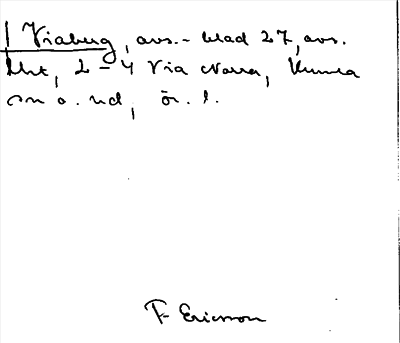 Viaberg, avs.-blad 27, avs.
Lht, 2-4 Via Norra, Kumla
sn o. hd, ör. l.
F. Ericsson